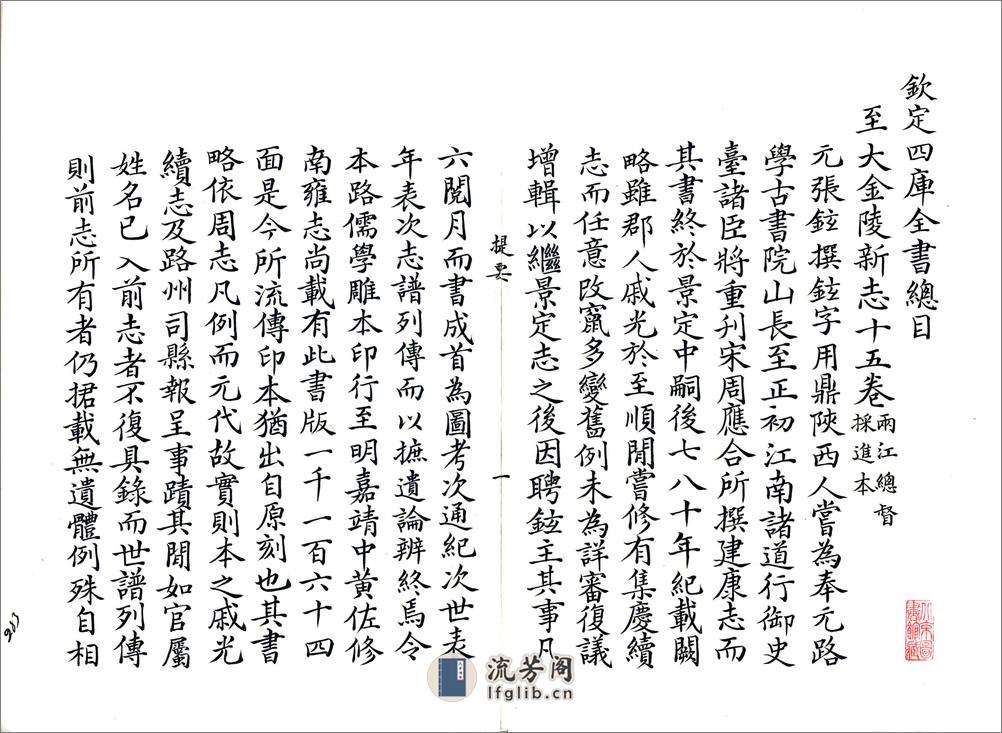 欽定四庫全書總目
至大金陵新志十五卷兩江總督採進本
元張鉉撰鉉字用鼎陝西人嘗為奉元路
學古書院山長至正初江南諸道行御史
臺諸臣將重刊宋周應合所撰建康志而
其書終於景定中嗣後七八十年紀載闕
略雖郡人戚光於至順閒嘗修有集慶續
志而任意改竄多變舊例未為詳審復議
增輯以繼景定志之後因聘鉉主其事凡
提要
一
六閱月而書成首為圖考次通紀次世表
年表次志譜列傳而以摭遺論辨終焉令
本路儒學雕本印行至明嘉靖中黃佐修
南雍志尚載有此書版一千一百六十四
面是今所流傳印本猶出自原刻也其書
略依周志凡例而元代故實則本之戚光
續志及路州司縣報呈事蹟其閒如官屬
姓名已入前志者不復具錄而世譜列傳
則前志所有者仍捃載無遺體例殊自相
263
流芳阁
lfglib.cn